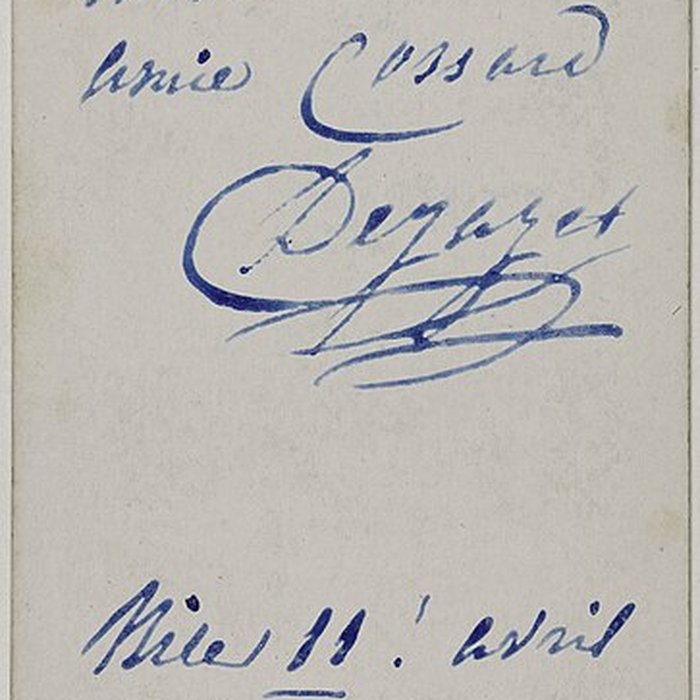 amie Cossard
Dejazet
11 avril